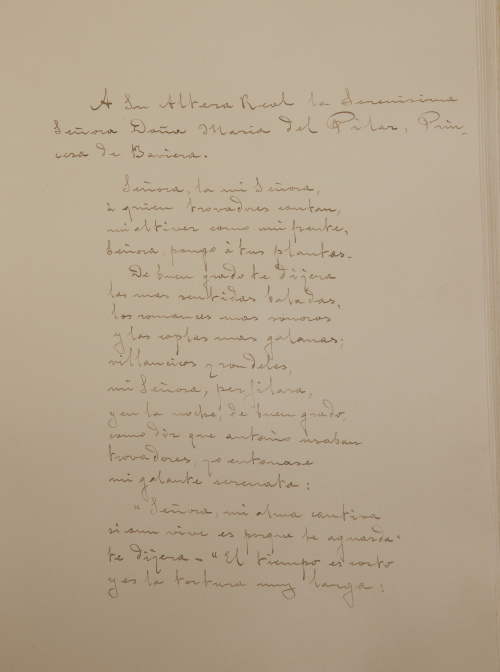 A Su Alteza Real la Serenísima
Señora Doña María del Pilar, Prin-
cesa de Baviera.
Señora, la mi Señora,
á quien trovadores cantan,
mi altivez como mi frente,
Señora, pongo á tus plantas.
De buen grado te dijera
las mas sentidas baladas,
los romances mas sonoros
y las coplas mas galanas;
villancicos y rondeles,
mi Señora, perfilara,
y en la noche, de buen grado,
como diz que antaño usaban
trovadores, yo entonase
mi galante serenata:
"Señora, mi alma cautiva
si aun vive es porque te aguarda"
te dijera - "El tiempo es corto
y es la tortura muy larga: